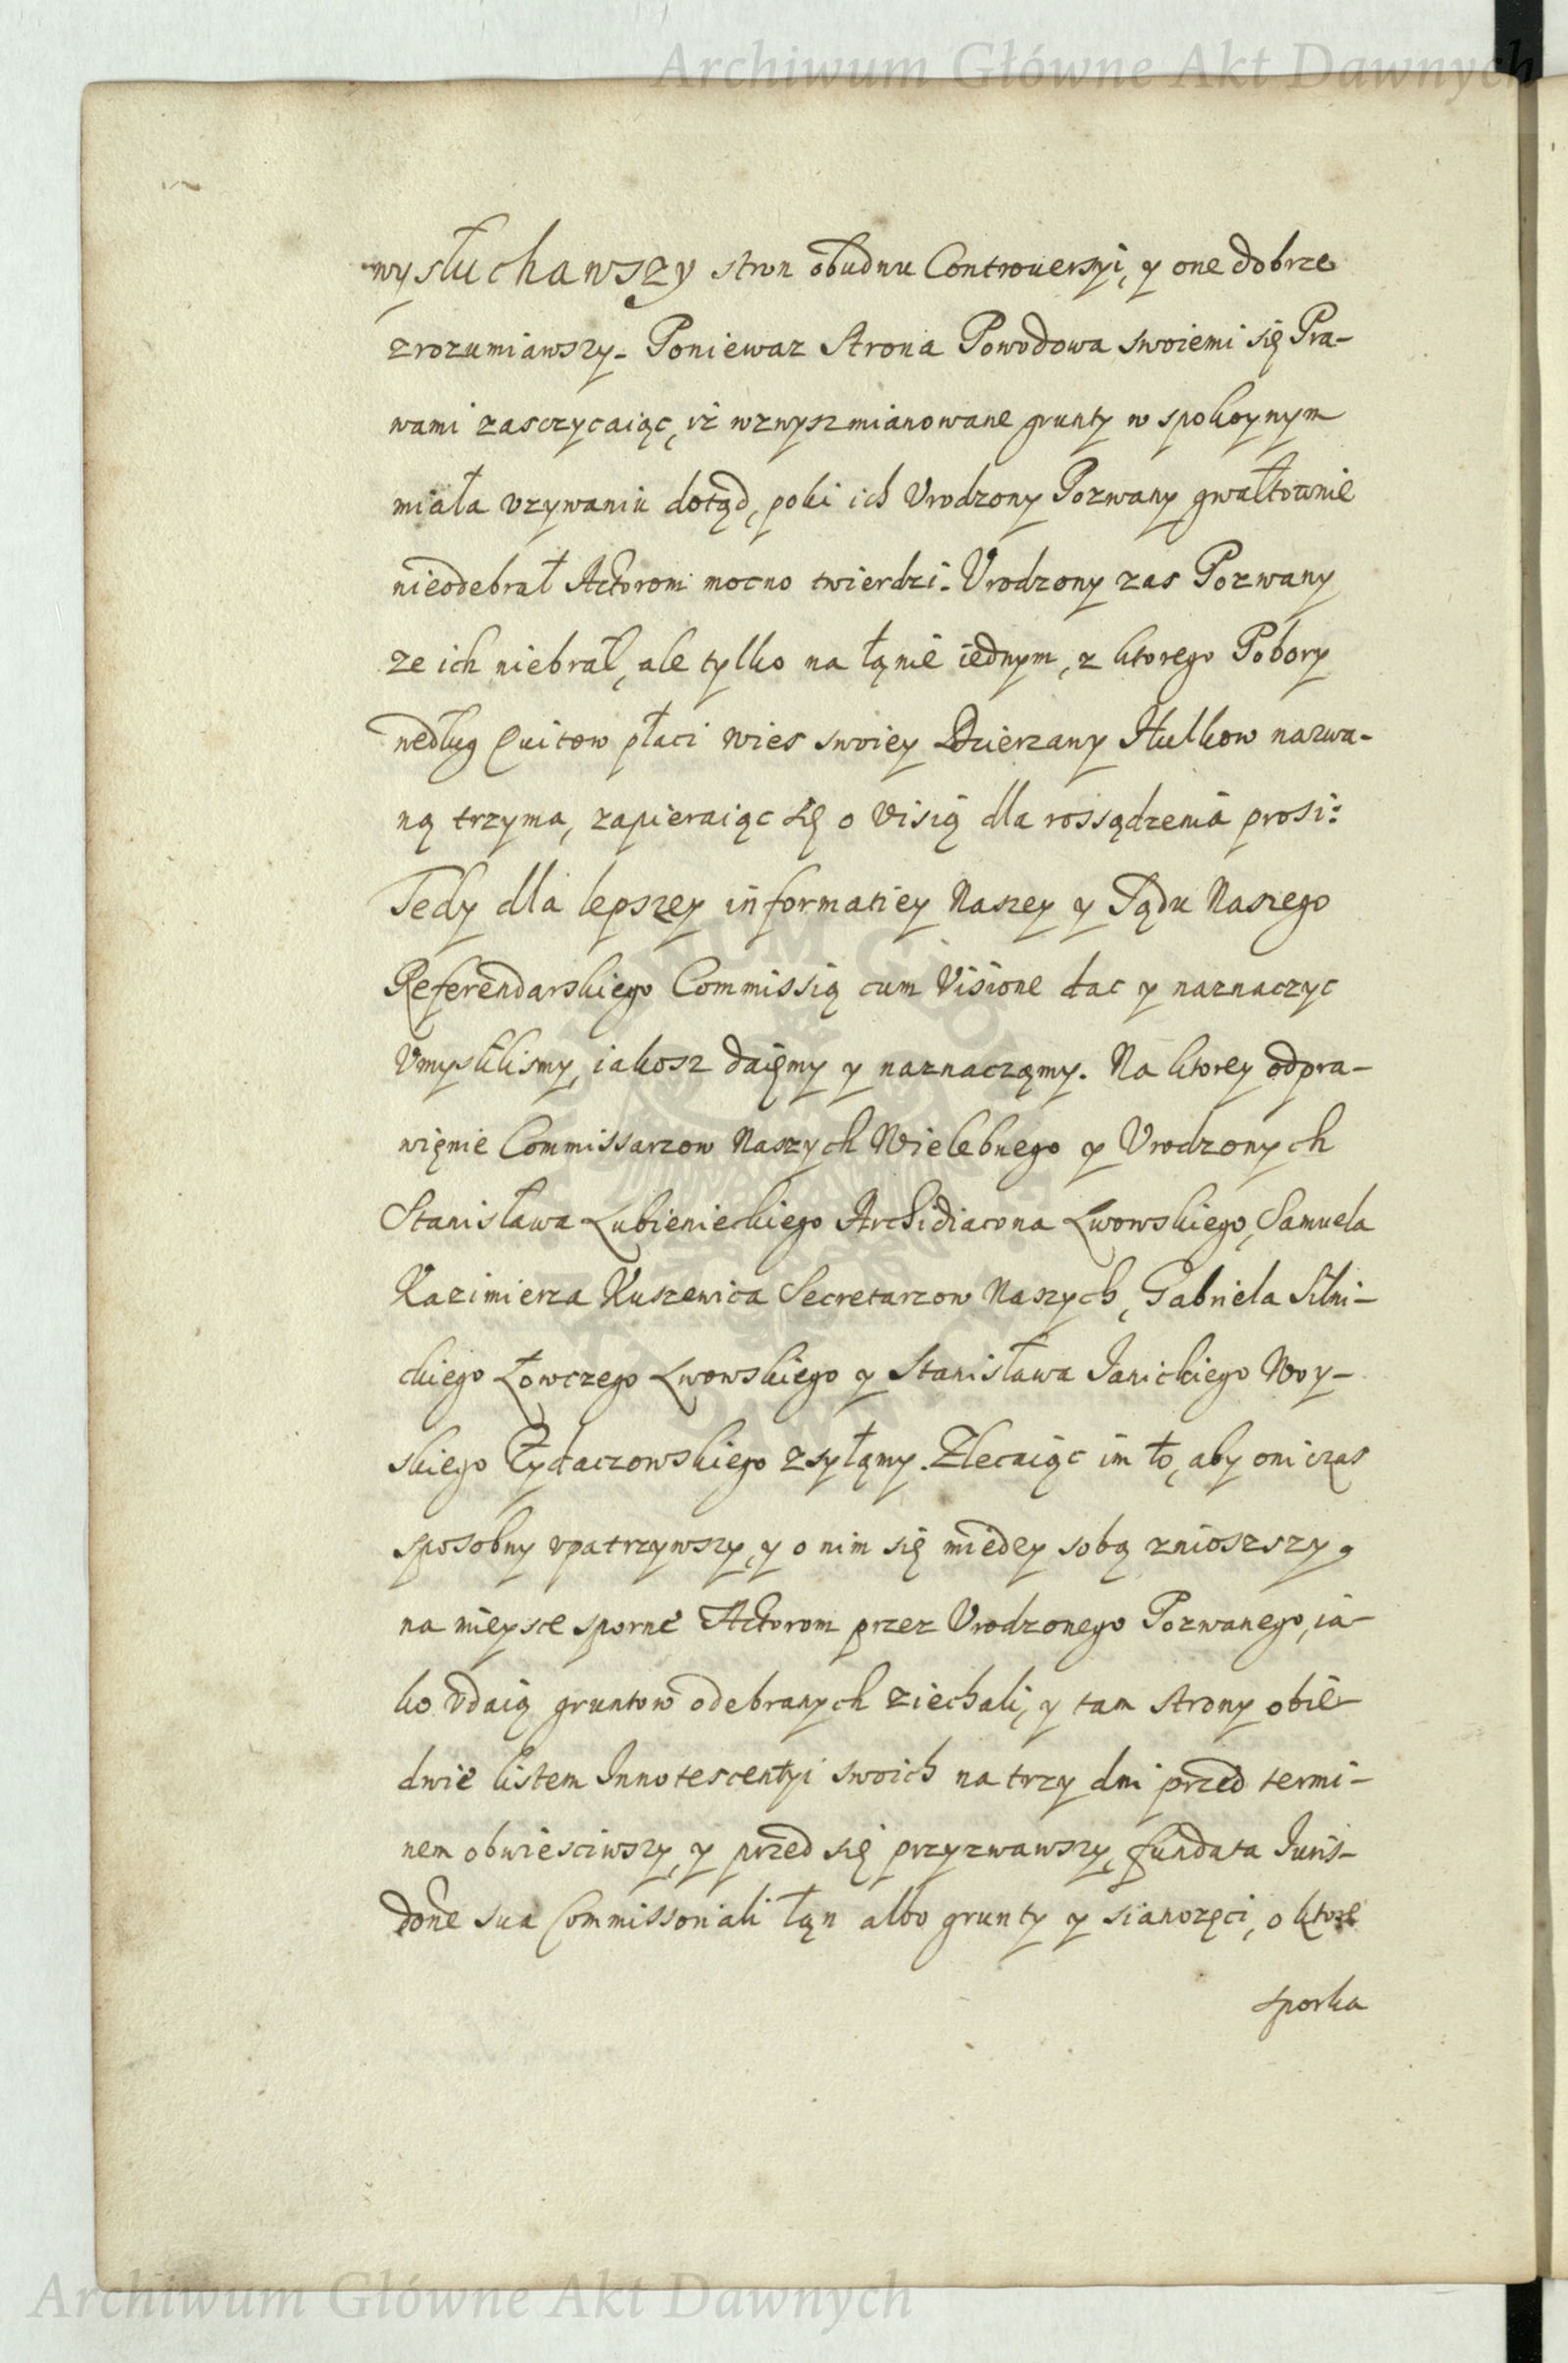 Archiwum Główne Akt Dawnych
wysłuchawszy stron obudwu Controuersyi, y one dobrze
zrozumiawszy. Poniewaz Strona Powodowa swoiemi się Pra-
wami zasczycaiąc, iż wzwyszmianowane grunty w spokoynym
miała vzywaniu dotąd, poki ich Vrodzony Pozwany gwałtownie
nieodebrał Actorom mocno twierdzi. Vrodzony zas Pozwany
ze ich niebrał, ale tylko na łąnie iednym, z ktorego Pobory
według Quitow płaci wies swoiey Dzierzawy Hulkow nazwa-
ną trzyma, zapieraiąc się o visią dla rossądzenia prosi:
Tedy dla lepszey informatiey Naszey y Sądu Naszego
Referendarskiego Commissią cum Visione dac y naznaczyc
Vmyslilismy, iakosz daięmy y naznacząmy. Na ktorey odpra-
więnie Commissarzow Naszych Wielebnego y Vrodzonych
Stanisława Łubienieckiego Archidiacona Lwowskiego, Samuela
Kazimierza Kuszewica Secretarzow Naszych, Gabriela Silni-
ckiego Łowczego Lwowskiego y Stanisława Janickiego Woy-
skiego Zydaczowskiego zsyłąmy. Zlecaiąc im to, aby oni czas
sposobny vpatrzywszy, y o nim się miedzy sobą znioszszy,
na mieysce sporne Actorom przez Vrodzonego Pozwanego, ia-
ko vdaią gruntow odebranych ziechali, y tam Strony obie-
dwie listem Innotescentyi swoich na trzy dni przed termi-
nem obwiesciwszy, y przed się przyzwawszy, fundata Juris-
done sua Commissoriali łąn albo grunty y sianozęci, o ktore
sporka
ARCHIWUM GŁÓWNE AKT DAWNYCH
Archiwum Główne Akt Dawnych